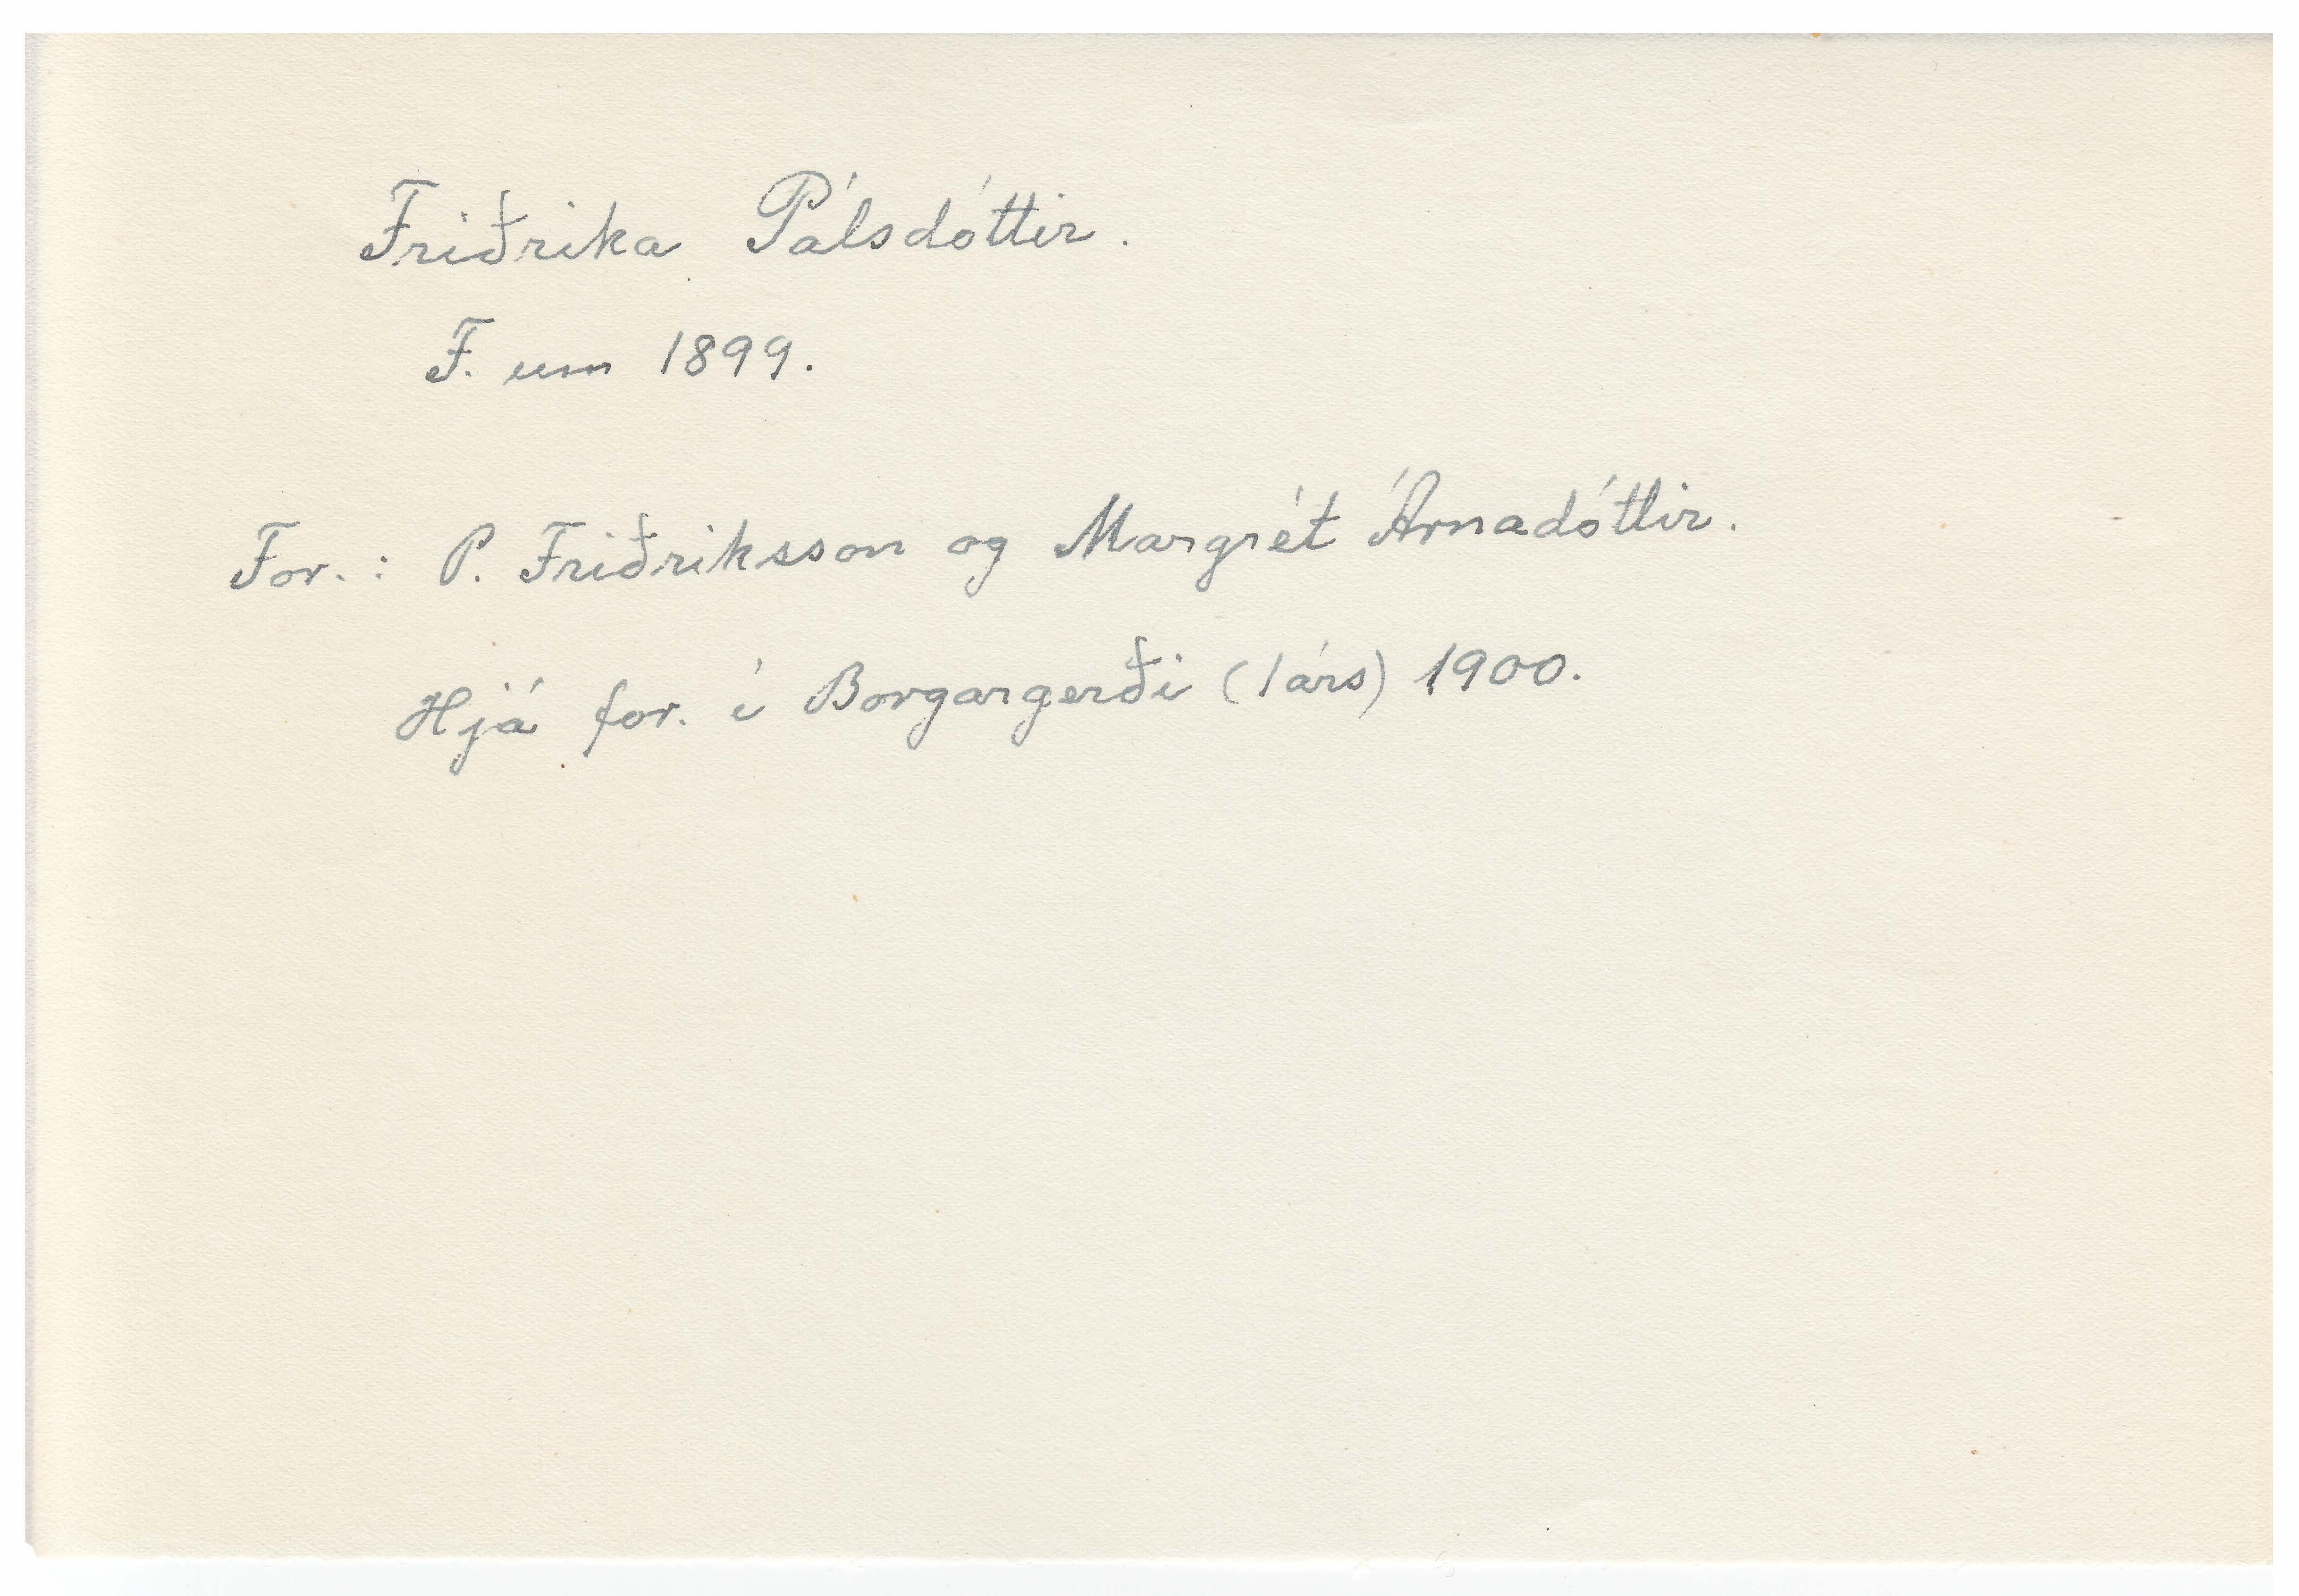 Friðrika Pálsdóttir.
F. um 1899.
For.: P. Friðriksson og Margrét Árnadóttir.
Hjá for. í Borgargerði (1 árs) 1900.